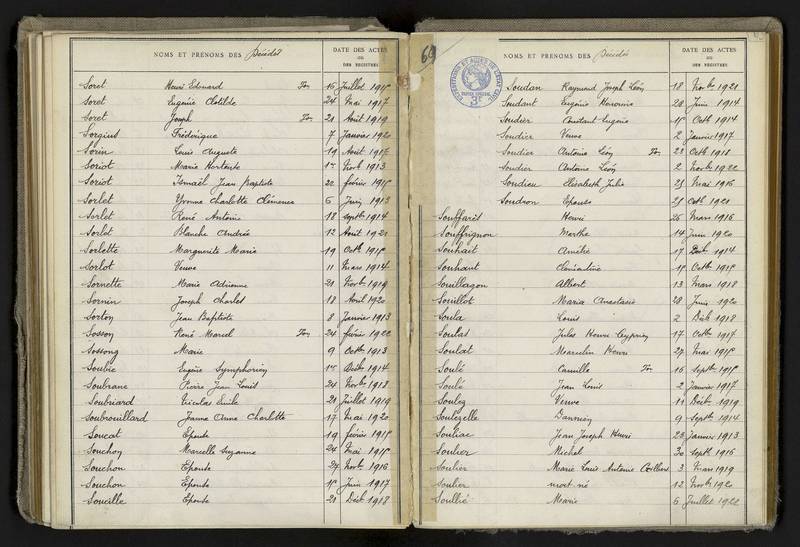 NOMS ET PRÉNOMS DES Décédés
DATE DES ACTES
OU
DES REGISTRES
Soret Henri Edouard Ton 16 Juillet 1915
Soret Eugénie Clotilde 24 Mai 1917
Soret Joseph Ton 21 Août 1919
Sorgius Frédérique 7 Janvier 1920
Sorin Louis Auguste 19 Août 1917
Soriot Marie Hortense Novb 1913
Soriot Ismaël Jean Baptiste 22 février 1915
Sorlet Yvonne Charlotte Clémence 6 Juin 1913
Sorlet René Antoine 18 Septbre 1914
Sorlet Blanche Andrée 12 Août 1921
Sorlette Marguerite Marie 19 Octb 1915
Sorlot Veuve 11 Mars 1914
Sornette Marie Adrienne 21 Novb 1919
Sornin Joseph Charles 18 Avril 1920
Sorton Jean Baptiste 8 Janvier 1913
Sosson René Marcel Ton 24 février 1922
Sossong Marie 9 Octbre 1913
Soubie Eugène Symphorien Décb 1914
Soubrane Pierre Jean Louis 24 Novb 1918
Soubriard Nicolas Emile 21 Juillet 1919
Soubrouillard Jeanne Anne Charlotte 17 Mai 1920
Soucat Epouse 19 février 1915
Souchon Marcelle Suzanne 24 Mai 1915
Souchon Epouse 27 Novb 1916
Souchon Epouse 15 Juin 1917
Soucille Epouse 21 Décb 1918
69
NOMS ET PRÉNOMS DES Décédés
DATE DES ACTES
OU
DES REGISTRES
Soudan Raymond Joseph Léon 18 Novb 1921
Soudant Eugénie Honorine 28 Juin 1914
Soudier Constant Eugène 15 Octb 1914
Soudier Veuve 2 Janvier 1917
Soudier Antoine Léon Ton 23 Octb 1918
Soudier Antoine Léon 2 Novbre 1922
Soudieu Elisabeth Julie 25 Mai 1916
Soudron Epouse 25 Octb 1921
Souffaris Henri 26 Mars 1916
Souffrignon Marthe 14 Juin 1920
Souhait Amélie 17 Décb 1914
Souhaut Clémentine 15 Octb 1915
Souillagon Albert 13 Mars 1918
Souillot Maria Anastasie 28 Juin 1920
Soula Louis 2 Décb 1918
Soulas Jules Henri Cyprien 17 Octb 1917
Soulat Marcelin Henri 27 Mai 1915
Soulé Camille Ton 16 Septb 1915
Soulé Jean Louis 2 Janvier 1917
Soulez Veuve 14 Décb 1919
Soulezelle Damien 9 Septb 1914
Souliac Jean Joseph Henri 23 Janvier 1913
Soulier Michel 30 Septb 1916
Soulier Marie Louis Antoine 3 Mars 1919
Soulier mort né 12 Novb 1920
Soullié Marie 6 Juillet 1922